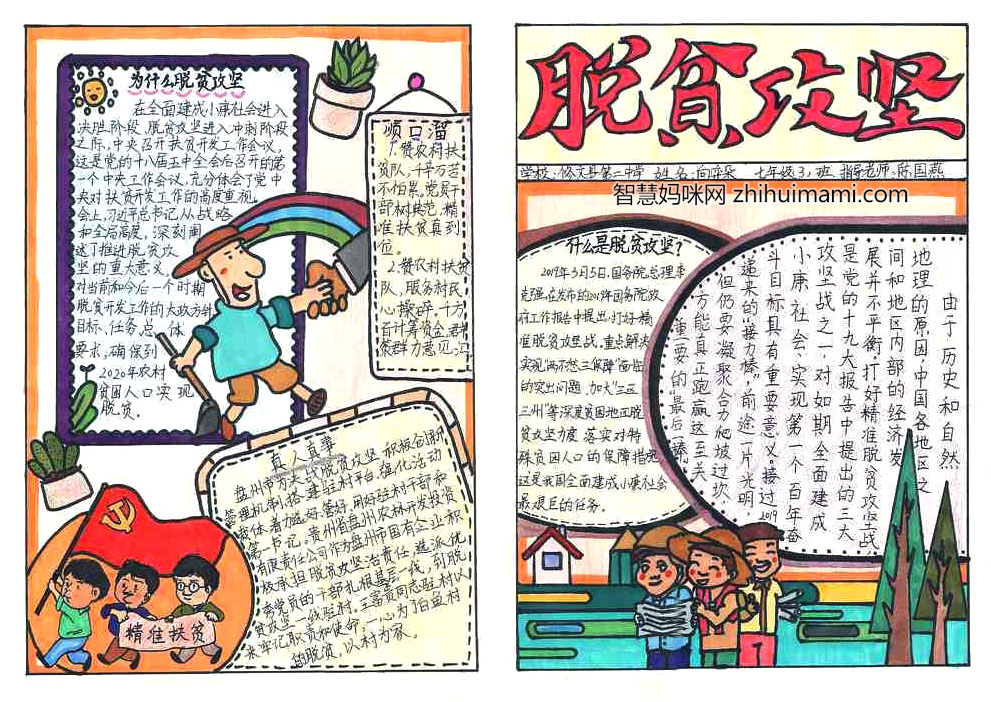 为什么脱贫攻坚
在全面建成小康社会进入
决胜阶段,脱贫攻坚进入冲刺阶段
之际,中央召开扶贫开发工作会议,
这是党的十八届五中全会后召开的第
一个中央工作会议,充分体会了党中
央对扶贫开发工作的高度重视。
会上,习近平总书记从战略
和全局高度,深刻阐
述了推进脱贫攻
坚的重大意义,
对当前和今后一个时期
脱贫开发工作的大政方针
目标、任务总体
要求,确保到
2020年农村
贫困人口实现
脱贫。
顺口溜
1.赞农村扶
贫队,千辛万苦
不怕累,党员干
部树典范,精
准扶贫真到
位。
2.赞农村扶贫
队,服务村民
心操碎,千方
百计筹资金,
群众力意见
真人真事
盘州市为决战脱贫攻坚,积极创新
管理机制,搭建驻村平台,强化活动
载体,着力选好、管好、用好驻村干部和
第一书记。贵州省盘州农林开发投资
有限责任公司作为盘州市国有企业积
极承担脱贫攻坚治责任,选派优
秀党员的干部扎根基层一线,到脱
贫攻坚一线驻村。王富贵同志驻村以
来牢记职责和使命,一心为了白鱼村
的脱贫,以村为家。
精准扶贫
脱贫攻坚
学校:修文县第二中学 姓名:向 七年级(3)班 指导老师:陈国燕
智慧妈咪网 zhihuimami.com
什么是脱贫攻坚?
2019年3月5日,国务院总理李
克强在发布的2019年国务院政
府工作报告中提出:打好精
准脱贫攻坚战,重点解决
实现“两不愁三保障”面临
的突出问题,加大“三区
三州”等深度贫困地区脱
贫攻坚力度,落实对特
殊贫困人口的保障措施。
这是我国全面建成小康社会
最艰巨的任务。
由于历史和自然
地理的原因,中国各地区之
间和地区内部的经济发
展并不平衡,打好精准脱贫攻坚战
是党的十九大报告中提出的三大
攻坚战之一,对如期全面建成
小康社会、实现第一个百年奋
斗目标具有重要意义。接过2019
递来的“接力棒”,前途一片光明,
但仍要凝聚合力爬坡过坎,
方能真正跑赢这至关
重要的“最后一棒”